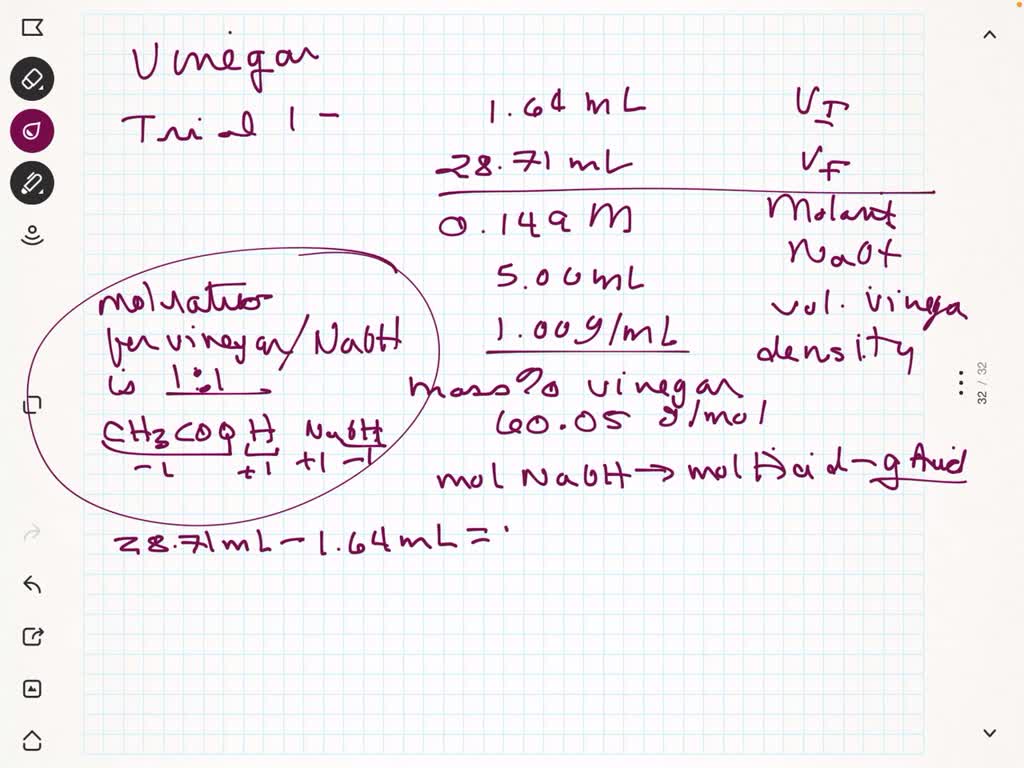 Vinegar
Trial 1 -
1.64 mL VI
28.71 mL VF
0.149 M Molarit
NaOH
5.00 mL vol. vinega
1.00g/mL density
mol ratio
for vinegar/NaOH
is 1:1
CH3COO H NaOH
-1 +1 +1 -1
mass % vinegar
60.05 g/mol
mol NaOH → mol Acid - g Acid
28.71mL - 1.64mL =
32 / 32